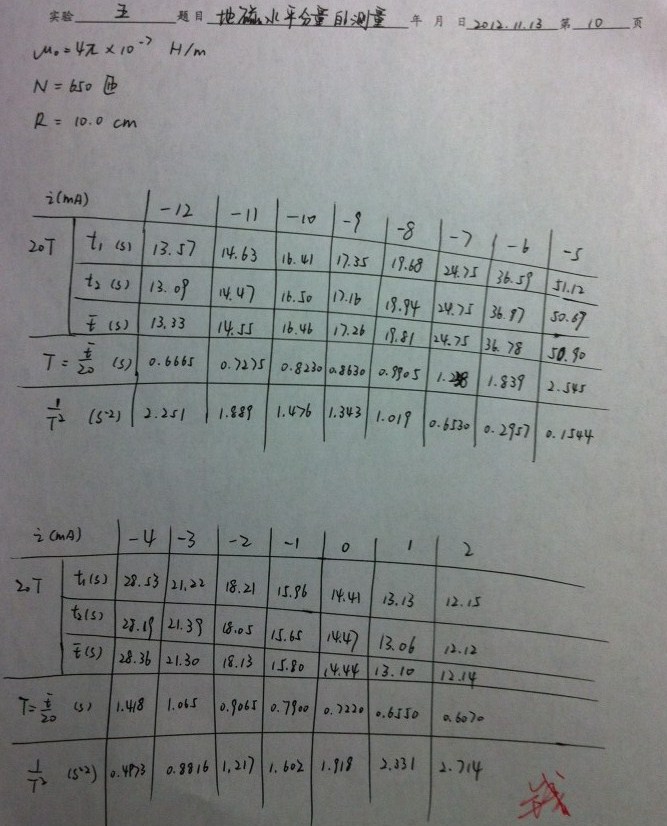 实验 五 题目 地磁水平分量的测量 年 月 日 2012.11.13 第 10 页
μ₀ = 4π × 10⁻⁷ H/m
N = 650 匝
R = 10.0 cm
i(mA) -12 -11 -10 -9 -8 -7 -6 -5
20T t₁ (s) 13.57 14.63 16.41 17.35 19.68 24.75 36.59 51.12
t₂ (s) 13.09 14.47 16.50 17.16 19.94 24.75 36.97 50.69
t̄ (s) 13.33 14.55 16.46 17.26 19.81 24.75 36.78 50.90
T = t̄/20 (s) 0.6665 0.7275 0.8230 0.8630 0.9905 1.238 1.839 2.545
1/T² (s⁻²) 2.251 1.889 1.476 1.343 1.019 0.6530 0.2957 0.1544
i(mA) -4 -3 -2 -1 0 1 2
20T t₁(s) 28.53 21.22 18.21 15.96 14.41 13.13 12.15
t₂(s) 28.19 21.39 18.05 15.65 14.47 13.06 12.12
t̄(s) 28.36 21.30 18.13 15.80 14.44 13.10 12.14
T = t̄/20 (s) 1.418 1.065 0.9065 0.7900 0.7220 0.6550 0.6070
1/T² (s⁻²) 0.4973 0.8816 1.217 1.602 1.918 2.331 2.714